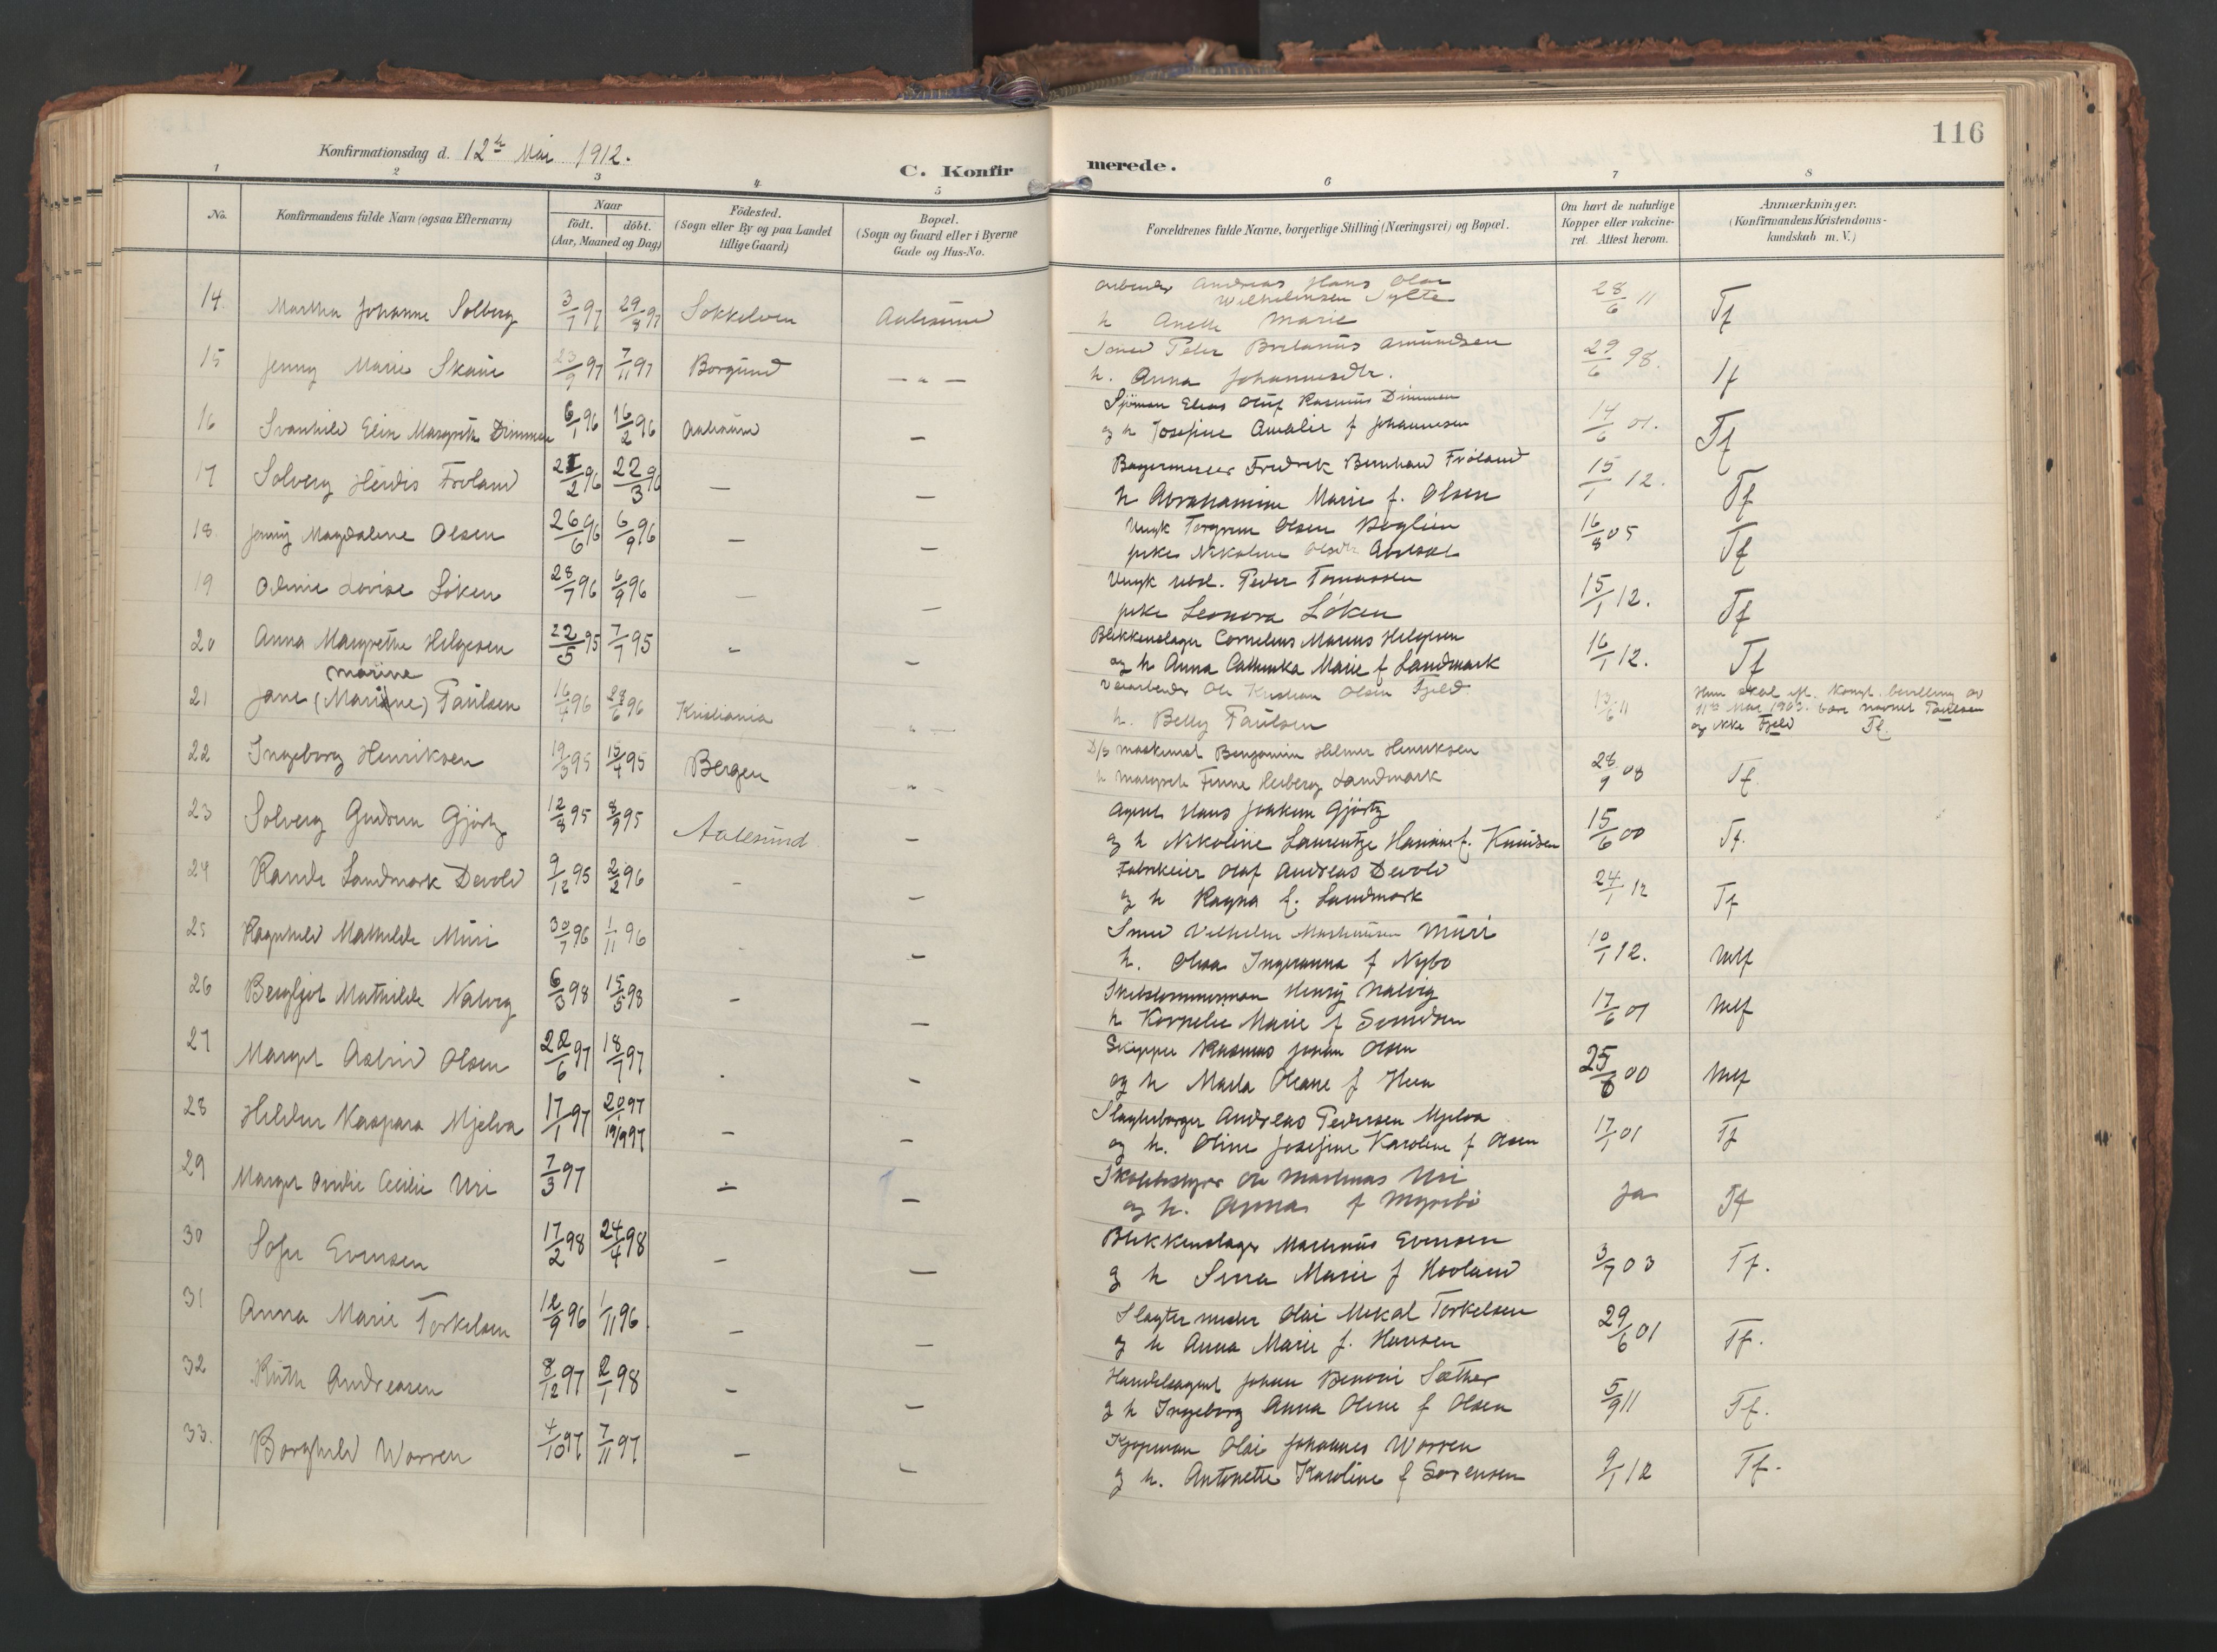 116
Konfirmationsdag d. 12te Mai 1912.
C. Konfirmerede.
1 2 3 4 5 6 7 8
No. Konfirmandens fulde Navn (ogsaa Efternavn) Naar födt. döbt. (Aar, Maaned og Dag) Födested. (Sogn eller By og paa Landet tillige Gaard) Bopæl. (Sogn og Gaard eller i Byerne Gade og Hus-No. Forældrenes fulde Navne, borgerlige Stilling (Næringsvei) og Bopæl. Om havt de naturlige Kopper eller vakcineret. Attest herom. Anmærkninger. (Konfirmandens Kristendomskundskab m. V.)
14. Martha Johanne Solberg 3/7 97 29/8 97 Sökkelven Aalesund Andreas Hans Olav
Wilhelmsen Sylte
h Anette Marie 28/6 11 Tf
15 Jenny Marie Skaue 23/9 97 7/11 97 Borgund — " — Smed Peter Amundsen
h. Anna Johannesdtr. 29/6 98. Tf
16 Svanhild Elin Margrethe Dimmen 6/1 96 16/2 96 Aalesund — Sjöman Elias Oluf Rasmus Dimmen
og h Josefine Amalie f Johannesen 14/6 01. Tf
17 Solveig Herdis Froland 21/2 96 22/3 96 — — Bagermester Fredrik Bernhard Froland
h Abrahamine Marie f. Olsen 15/1 12. Tf
18. Jenny Magdalene Olsen 26/6 96 6/9 96 — — Ungk Olsen
pike Nikoline 16/8 05 Tf
19 Lovise Löken 28/7 96 6/9 96 — — Ungk Peder Tomassen
pike Leonora Löken 15/1 12. Tf
20 Anna Margrethe Helgesen 22/5 95 7/7 95 - — Blikkenslager Cornelius Marius Helgesen
og h Anna Cathinka Marie f Landmark 16/1 12. Tf
marine
21 Jane (Marine) Paulsen 16/4 96 28/6 96 Kristiania " — Ole Kristian Olsen Fjeld
h. Betty Paulsen 13/6 11 Hun skal ifl. Kongl. bevilling av
11te Mai 1903 bære navnet Paulsen
og ikke Fjeld Tf.
22 Ingeborg Henriksen 19/3 95 15/4 95 Bergen - " - D/S maskinist Benjamin Helmer Henriksen
h Margrete Finne Herberg Landmark 28/9 08 Tf.
23 Solveig Gudrun Gjörtz 12/8 95 8/9 95 Aalesund — Agent Hans Joakim Gjörtz
og h Nikoline Laurentze Hansine f. Knudsen 15/6 00 Tf.
24 Randi Landmark Devold 9/12 95 2/2 96 - — Fabrikeier Olaf Andreas Devold
og h Ragna f. Landmark 24/1 12 Tf
25 Ragnhild Mathilde Muri 30/7 96 1/11 96 - — Smed Vilhelm Muri
h. Olava Ingeranna f Nybö 10/1 12. Mtf
26 Bergljot Mathilde Natvig 6/3 98 15/5 98 - — Skibstømmerman Henry Natvig
h Kornelie Marie f Svendsen 17/6 01 Mtf
27 Margit Astrid Olsen 22/6 97 18/7 97 . — Skipper Rasmus Johan Olsen
og h Marta Oleane f 25/6 00 Mtf
28 Kaspara Mjelva 17/1 97 20/1 97
19/9 97 — — Andreas Pedersen Mjelva
og h. Oline Josefine Karoline f Olsen 17/1 01 Tf
29 Margit Cecilie Uri 7/3 97 — — Skolebestyrer Ole Martinus Uri
og h. Anna f Myrebö ja Tf
30 Sofie Evensen 17/2 98 24/4 98 — — Blikkenslager Martinus Evensen
og h Sina Marie f Hovland 3/7 03 Tf.
31 Anna Marie Torkelsen 12/9 96 1/11 96. — — Slagtermester Olai Mikal Torkelsen
og h Anna Marie f. Hansen 29/6 01 Tf.
32 Ruth Andreasen 8/12 97 2/1 98 — — Handelsagent Johan Benoni Sæther
og h Ingeborg Anna Oline f Olsen 5/9 11 Tf.
33. Borghild Worren 4/10 97 7/11 97 — — Kjøpman Olai Johannes Worren
og h. Antonette Karoline f Sörensen 9/1 12 Tf.